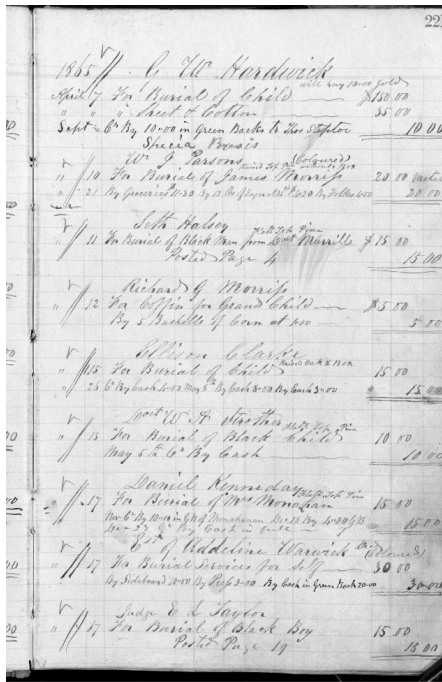 22
1865 G W Hardwick
will pay 10.00 gold
April 7 For Burial of Child $150 00
" " " Sheet & Cotton 35 00
Sept Cr By 10.00 in Green Backs to Thos 10 00
Specia Basis
W J Parsons (Coloured)
" 10 For Burial of James Morriss 20 00
" 21 By Groceries 11.30 By 12 lbs of Sugar 20 00
Seth Halsey
Flatt Top Pine
" 11 For Burial of Black Man from Merrills $15 00
Posted Page 4 15 00
Richard G Morriss
" 12 For Coffin for Grand Child $5 00
By 5 Bushells of Corn at 1.00 5 00
Ellison Clarke
" 15 For Burial of Child 15 00
" 26 Cr By Cash 4.00 May 8th By Cash 8.00 By Cash 3.00 15 00
Doct W A Strother
Flatt Top Pine
" 15 For Burial of Black Child 10 00
May 5th Cr By Cash 10 00
Daniel Kenneday
Flatt Top Pine
" 17 For Burial of Mrs Monaghan 15 00
Nov 6 By 10.00 in of Monaghan Dec 13 By 15 00
By Cash in full
Est of Addeline Warwick (Coloured)
" 17 For Burial Services for Self 30 00
By Sideboard 10.00 By Press By Cash in Green Back 20.00 30 00
Judge E L Taylor
" 17 For Burial of Black Boy 15.00
Posted Page 19 15 00